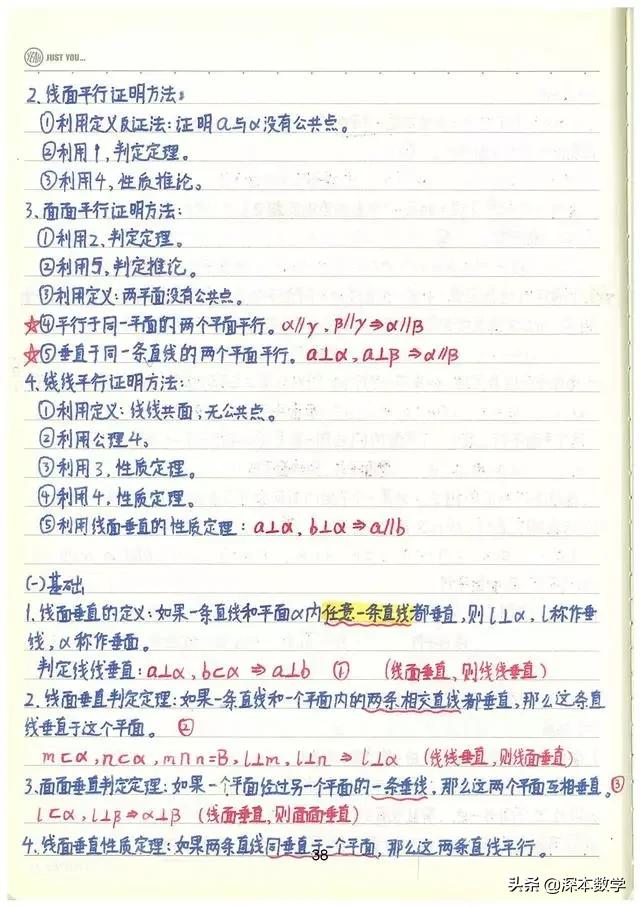 YEAH JUST YOU...
2.线面平行证明方法:
①利用定义及证法:证明a与α没有公共点。
②利用1,判定定理。
③利用4,性质推论。
3.面面平行证明方法:
①利用2、判定定理。
②利用5,判定推论。
③利用定义:两平面没有公共点。
★④平行于同一平面的两个平面平行。α∥γ,β∥γ⇒α∥β
★⑤垂直于同一条直线的两个平面平行。a⊥α,a⊥β⇒α∥β
4.线线平行证明方法:
①利用定义:线线共面,无公共点。
②利用公理4。
③利用3,性质定理。
④利用4,性质定理。
⑤利用线面垂直的性质定理:a⊥α,b⊥α⇒a∥b
(一)基础
1.线面垂直的定义:如果一条直线和平面α内任意一条直线都垂直,则l⊥α,l称作垂
线,α称作垂面。
判定线线垂直:a⊥α,b⊂α⇒a⊥b ① (线面垂直,则线线垂直)
2.线面垂直判定定理:如果一条直线和一个平面内的两条相交直线都垂直,那么这条直
线垂直于这个平面。②
m⊂α,n⊂α,m∩n=B,l⊥m,l⊥n⇒l⊥α (线线垂直,则线面垂直)
3.面面垂直判定定理:如果一个平面经过另一个平面的一条垂线,那么这两个平面互相垂直。③
l⊂α,l⊥β⇒α⊥β (线面垂直,则面面垂直)
4.线面垂直性质定理:如果两条直线同垂直于一个平面,那么这两条直线平行。
38
头条@深本数学